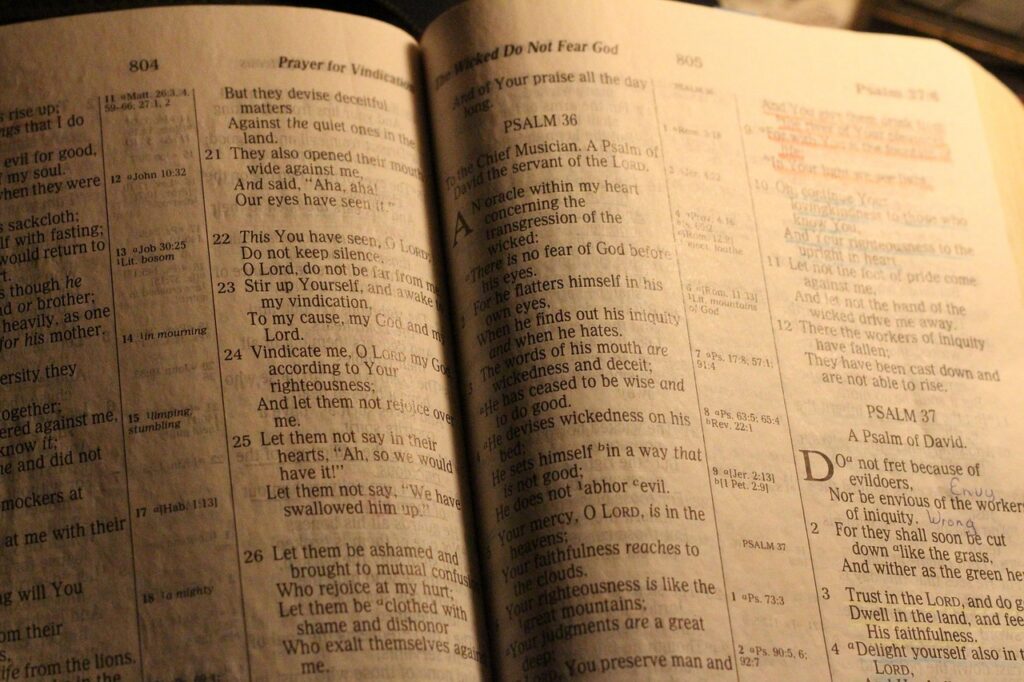 804
Prayer for
rise up;
that I do
evil for good,
my soul.
when they were
sackcloth;
with fasting;
would return to
though he
or brother;
heavily, as one
for his mother.
they
ogether;
against me,
know it;
and did not
mockers at
at me with their
will You
from their
life from the lions.
11 ᵃMatt. 26:3, 4,
59–66; 27:1, 2
12 ᵃJohn 10:32
13 ᵃJob 30:25
¹Lit. bosom
14 ¹in mourning
15 ¹limping,
stumbling
17 ᵃ[Hab. 1:13]
18 ¹a mighty
But they devise deceitful
matters
Against the quiet ones in the
land.
21 They also opened their
wide against me,
And said, "Aha, aha!
Our eyes have seen it."
22 This You have seen, O LORD
Do not keep silence.
O Lord, do not be far from me
23 Stir up Yourself, and awake
my vindication,
To my cause, my God and my
Lord.
24 Vindicate me, O LORD my
according to Your
righteousness;
And let them not rejoice over
me.
25 Let them not say in their
hearts, "Ah, so we would
have it!"
Let them not say, "We have
swallowed him up."
26 Let them be ashamed and
brought to mutual
Who rejoice at my hurt;
Let them be ᵃclothed with
shame and dishonor
Who exalt themselves
me.
The Wicked Do Not Fear God
805
And of Your praise all the day
long.
PSALM 36
To the Chief Musician. A Psalm of
David the servant of the LORD.
AN oracle within my heart
concerning the
transgression of the
wicked:
ᵃThere is no fear of God before
his eyes.
For he flatters himself in his
own eyes,
When he finds out his iniquity
and when he hates.
3 The words of his mouth are
wickedness and deceit;
ᵃHe has ceased to be wise and
to do good.
4 ᵃHe devises wickedness on his
bed;
He sets himself ᵇin a way that
is not good;
He does not ¹abhor ᶜevil.
Your mercy, O LORD, is in the
heavens;
Your faithfulness reaches to
the clouds.
Your righteousness is like the
¹great mountains;
ᵃYour judgments are a great
deep;
You preserve man and
6 ᵃ[Rom. 11:33]
¹Lit. mountains
of God
7 ᵃPs. 17:8; 57:1;
91:4
8 ᵃPs. 63:5; 65:4
ᵇRev. 22:1
9 ᵃ[Jer. 2:13]
ᵇ[1 Pet. 2:9]
PSALM 37
1 ᵃPs. 73:3
2 ᵃPs. 90:5, 6;
92:7
Psalm 37:4
10 Oh, continue Your
lovingkindness to those who
know You,
And Your righteousness to the
upright in heart.
11 Let not the foot of pride come
against me,
And let not the hand of the
wicked drive me away.
12 There the workers of iniquity
have fallen;
They have been cast down and
are not able to rise.
PSALM 37
A Psalm of David.
DOᵃ not fret because of
evildoers,
Envy
Nor be envious of the workers
of iniquity. Wrong
2 For they shall soon be cut
down ᵃlike the grass,
And wither as the green
3 Trust in the LORD, and do
Dwell in the land, and
His faithfulness.
4 ᵃDelight yourself also in
LORD,